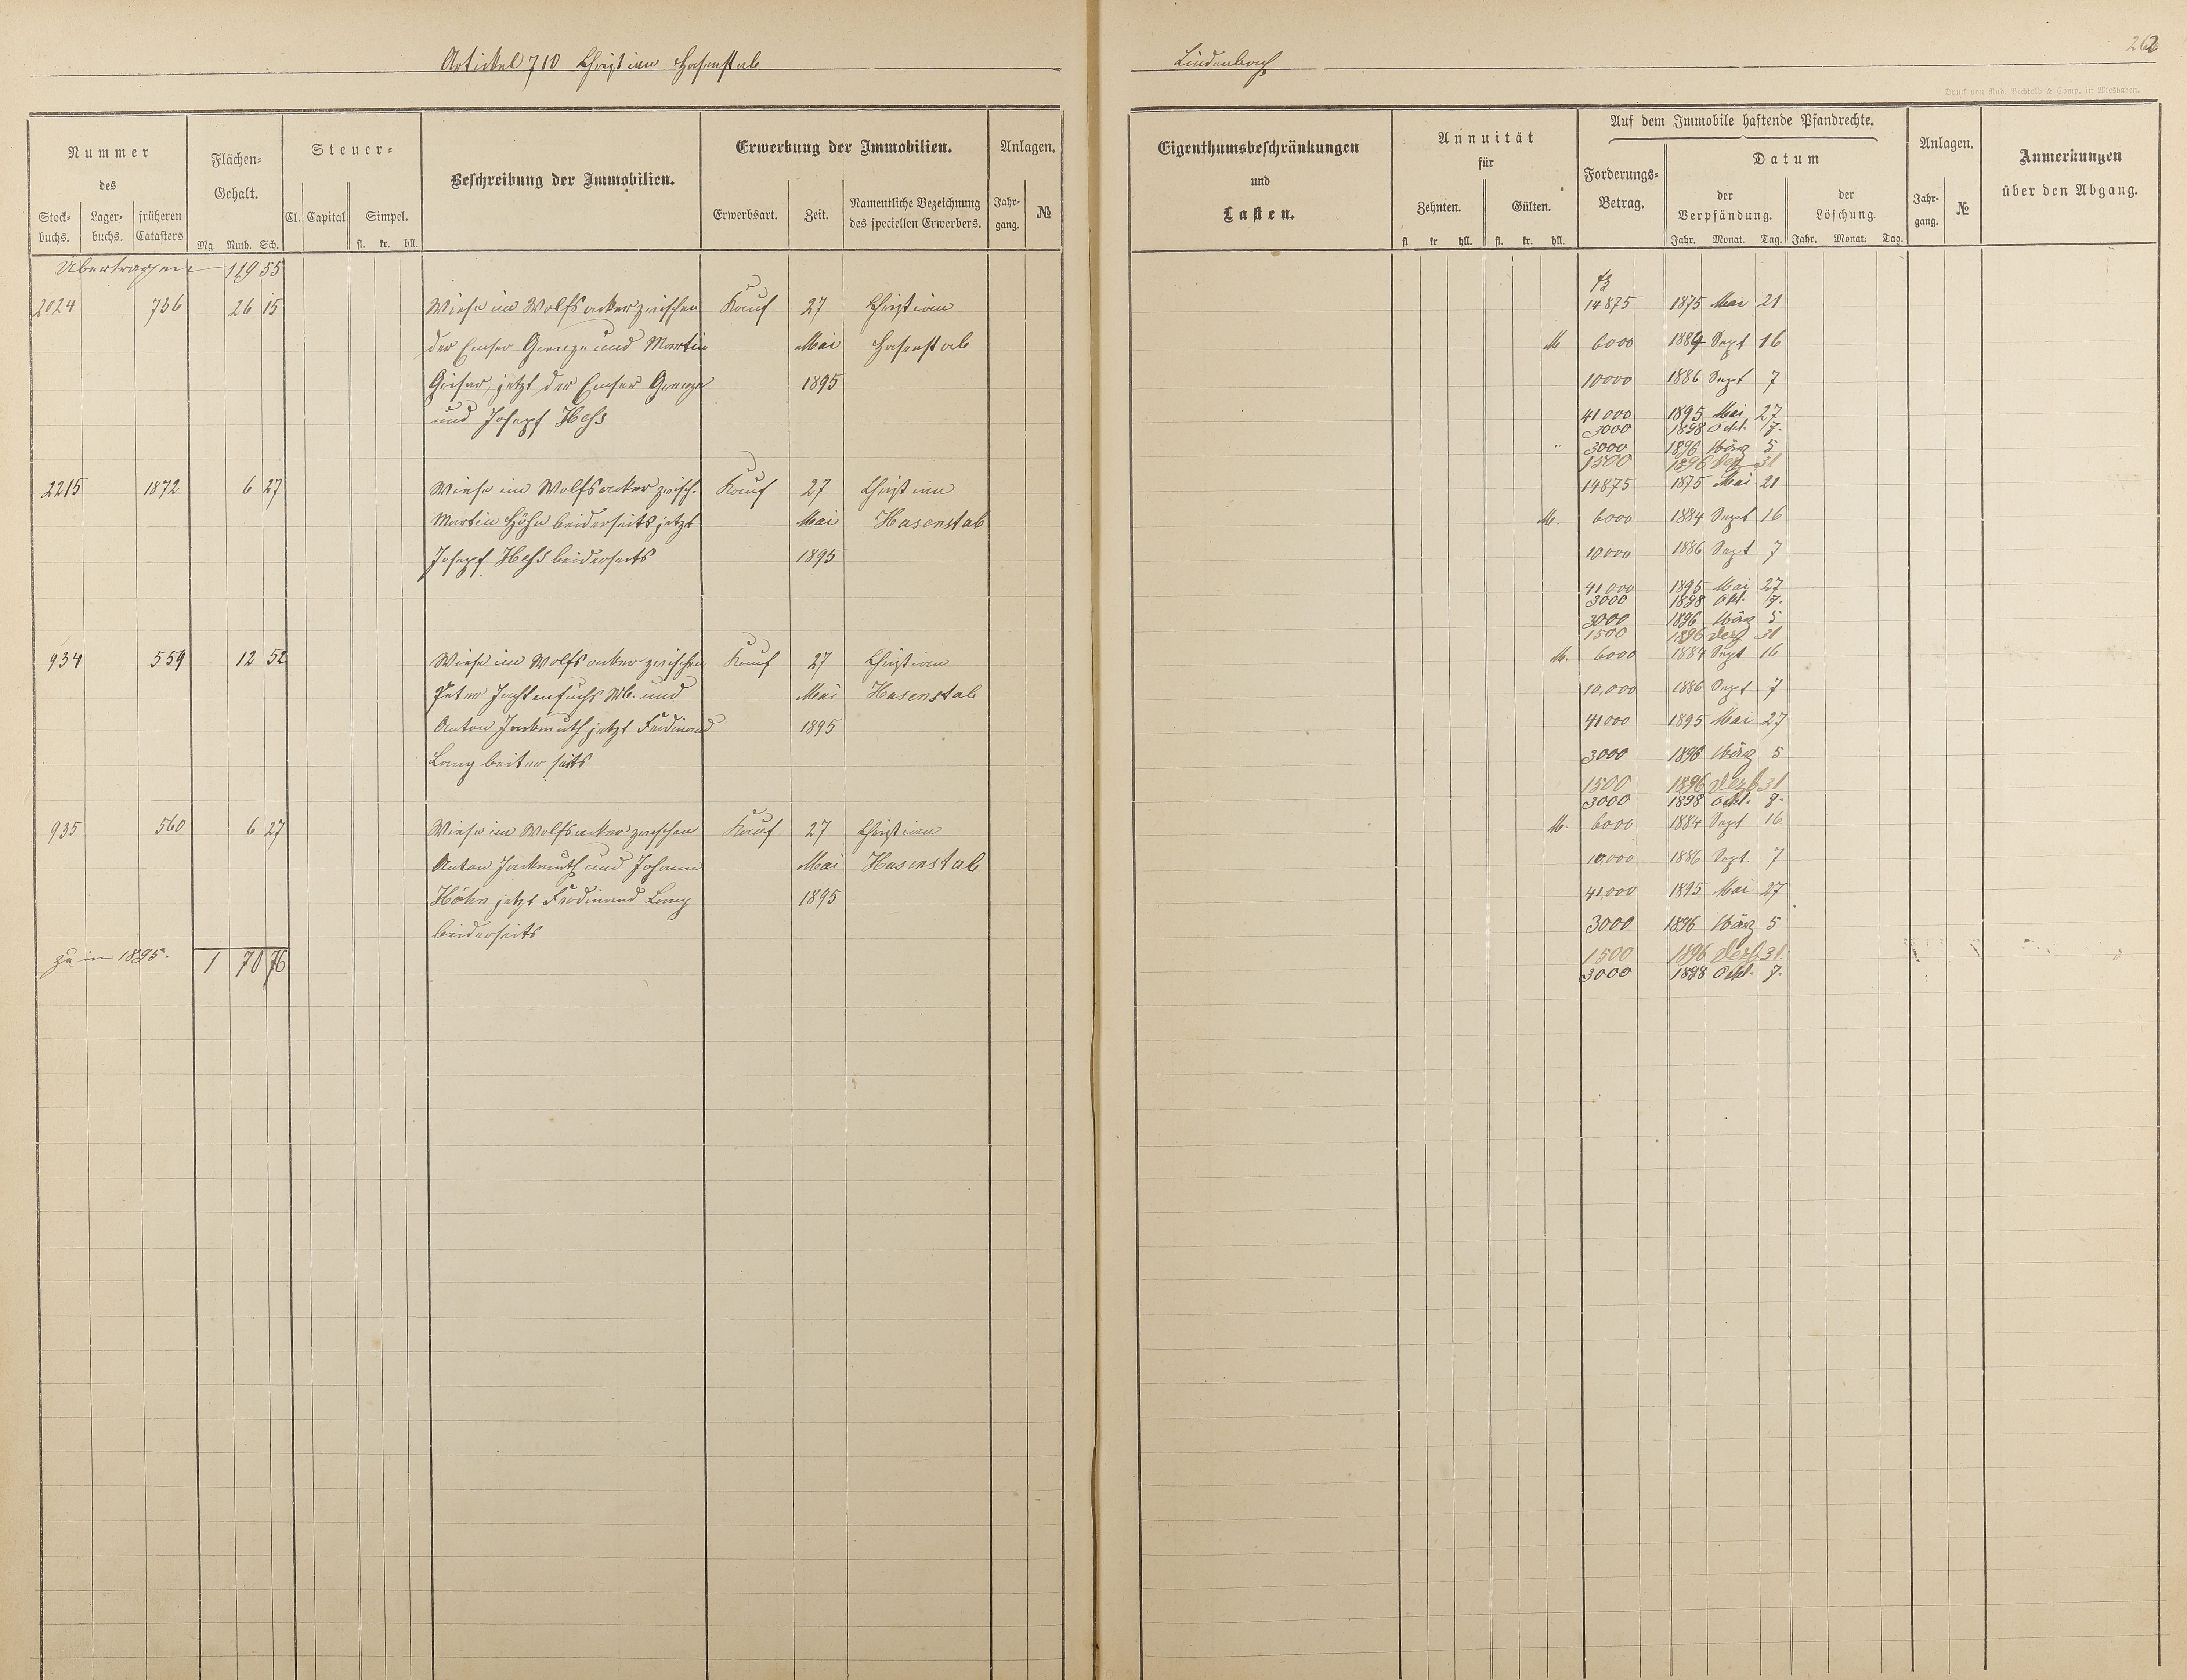 Artikel 710 Christian Hasenstab
Lindenbach
262
Druck von Rud. Bechtold & Comp. in Wiesbaden.
Nummer des
Stockbuchs. Lagerbuchs. früheren Catasters
Flächen-Gehalt.
Mg. Ruth. Sch.
Steuer-
Cl. Capital Simpel.
fl. kr. hll.
Beschreibung der Immobilien.
Erwerbung der Immobilien.
Erwerbsart. Zeit. Namentliche Bezeichnung des speciellen Erwerbers.
Anlagen.
Jahrgang. №
Eigenthumsbeschränkungen und Lasten.
Annuität für
Zehnten. Gülten.
fl kr hll. fl. kr. hll.
Auf dem Immobile haftende Pfandrechte.
Forderungs-Betrag.
Datum
der Verpfändung. der Löschung.
Jahr. Monat. Tag. Jahr. Monat. Tag.
Anlagen.
Jahrgang. №
Anmerkungen über den Abgang.
Übertragen 119 55
2024 736 26 15 Wiese im Wolfsacker zwischen Kauf 27 Christian 14875 1875 Mai 21
der Emser Grenze und Martin Mai Hasenstab M 6000 1884 Sept 16
jetzt der Emser Grenze 1895 10000 1886 Sept 7
und Josepf Heß 41000 1895 Mai 27
3000 1898 Okt. 7.
3000 1896 März 5
1500 1896 Dez 31
2215 1872 6 27 Wiese im Wolfsacker zwisch. Kauf 27 Christian 14875 1875 Mai 21
Martin Höhn beiderseits jetzt Mai Hasenstab M. 6000 1884 Sept 16
Josepf Heß beiderseits 1895 10000 1886 Sept 7
41,000 1895 Mai 27
3000 1898 Okt. 7.
3000 1896 März 5
1500 1896 Dez 31
934 559 12 52 Wiese im Wolfsacker zwischen Kauf 27 Christian M. 6000 1884 Sept 16
Peter Jachtenfuchs Wb. und Mai Hasenstab 10,000 1886 Sept 7
Anton Jackmuth jetzt Ferdinand 1895 41000 1895 Mai 27
Lang beiter seits 3000 1896 März 5
1500 1896 Dezb 31
3000 1898 Okt. 7.
935 560 6 27 Wiese im Wolfsacker zwischen Kauf 27 Christian M. 6000 1884 Sept 16
Anton Jackmuth und Johann Mai Hasenstab 10,000 1886 Sept. 7
Höhn jetzt Ferdinand Lang 1895 41,000 1895 Mai 27
beiderseits 3000 1896 März 5
zu in 1895. 1 70 76 1500 1896 Dezb 31.
3000 1898 Okt. 7.